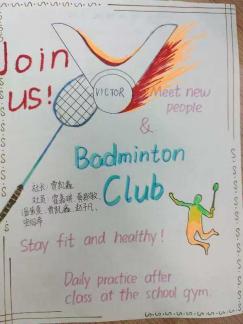 Join
us!
VICTOR
Meet new
people
&
Badminton
Club
社长:
社员:
Stay fit and healthy!
Daily practice after
class at the school gym.